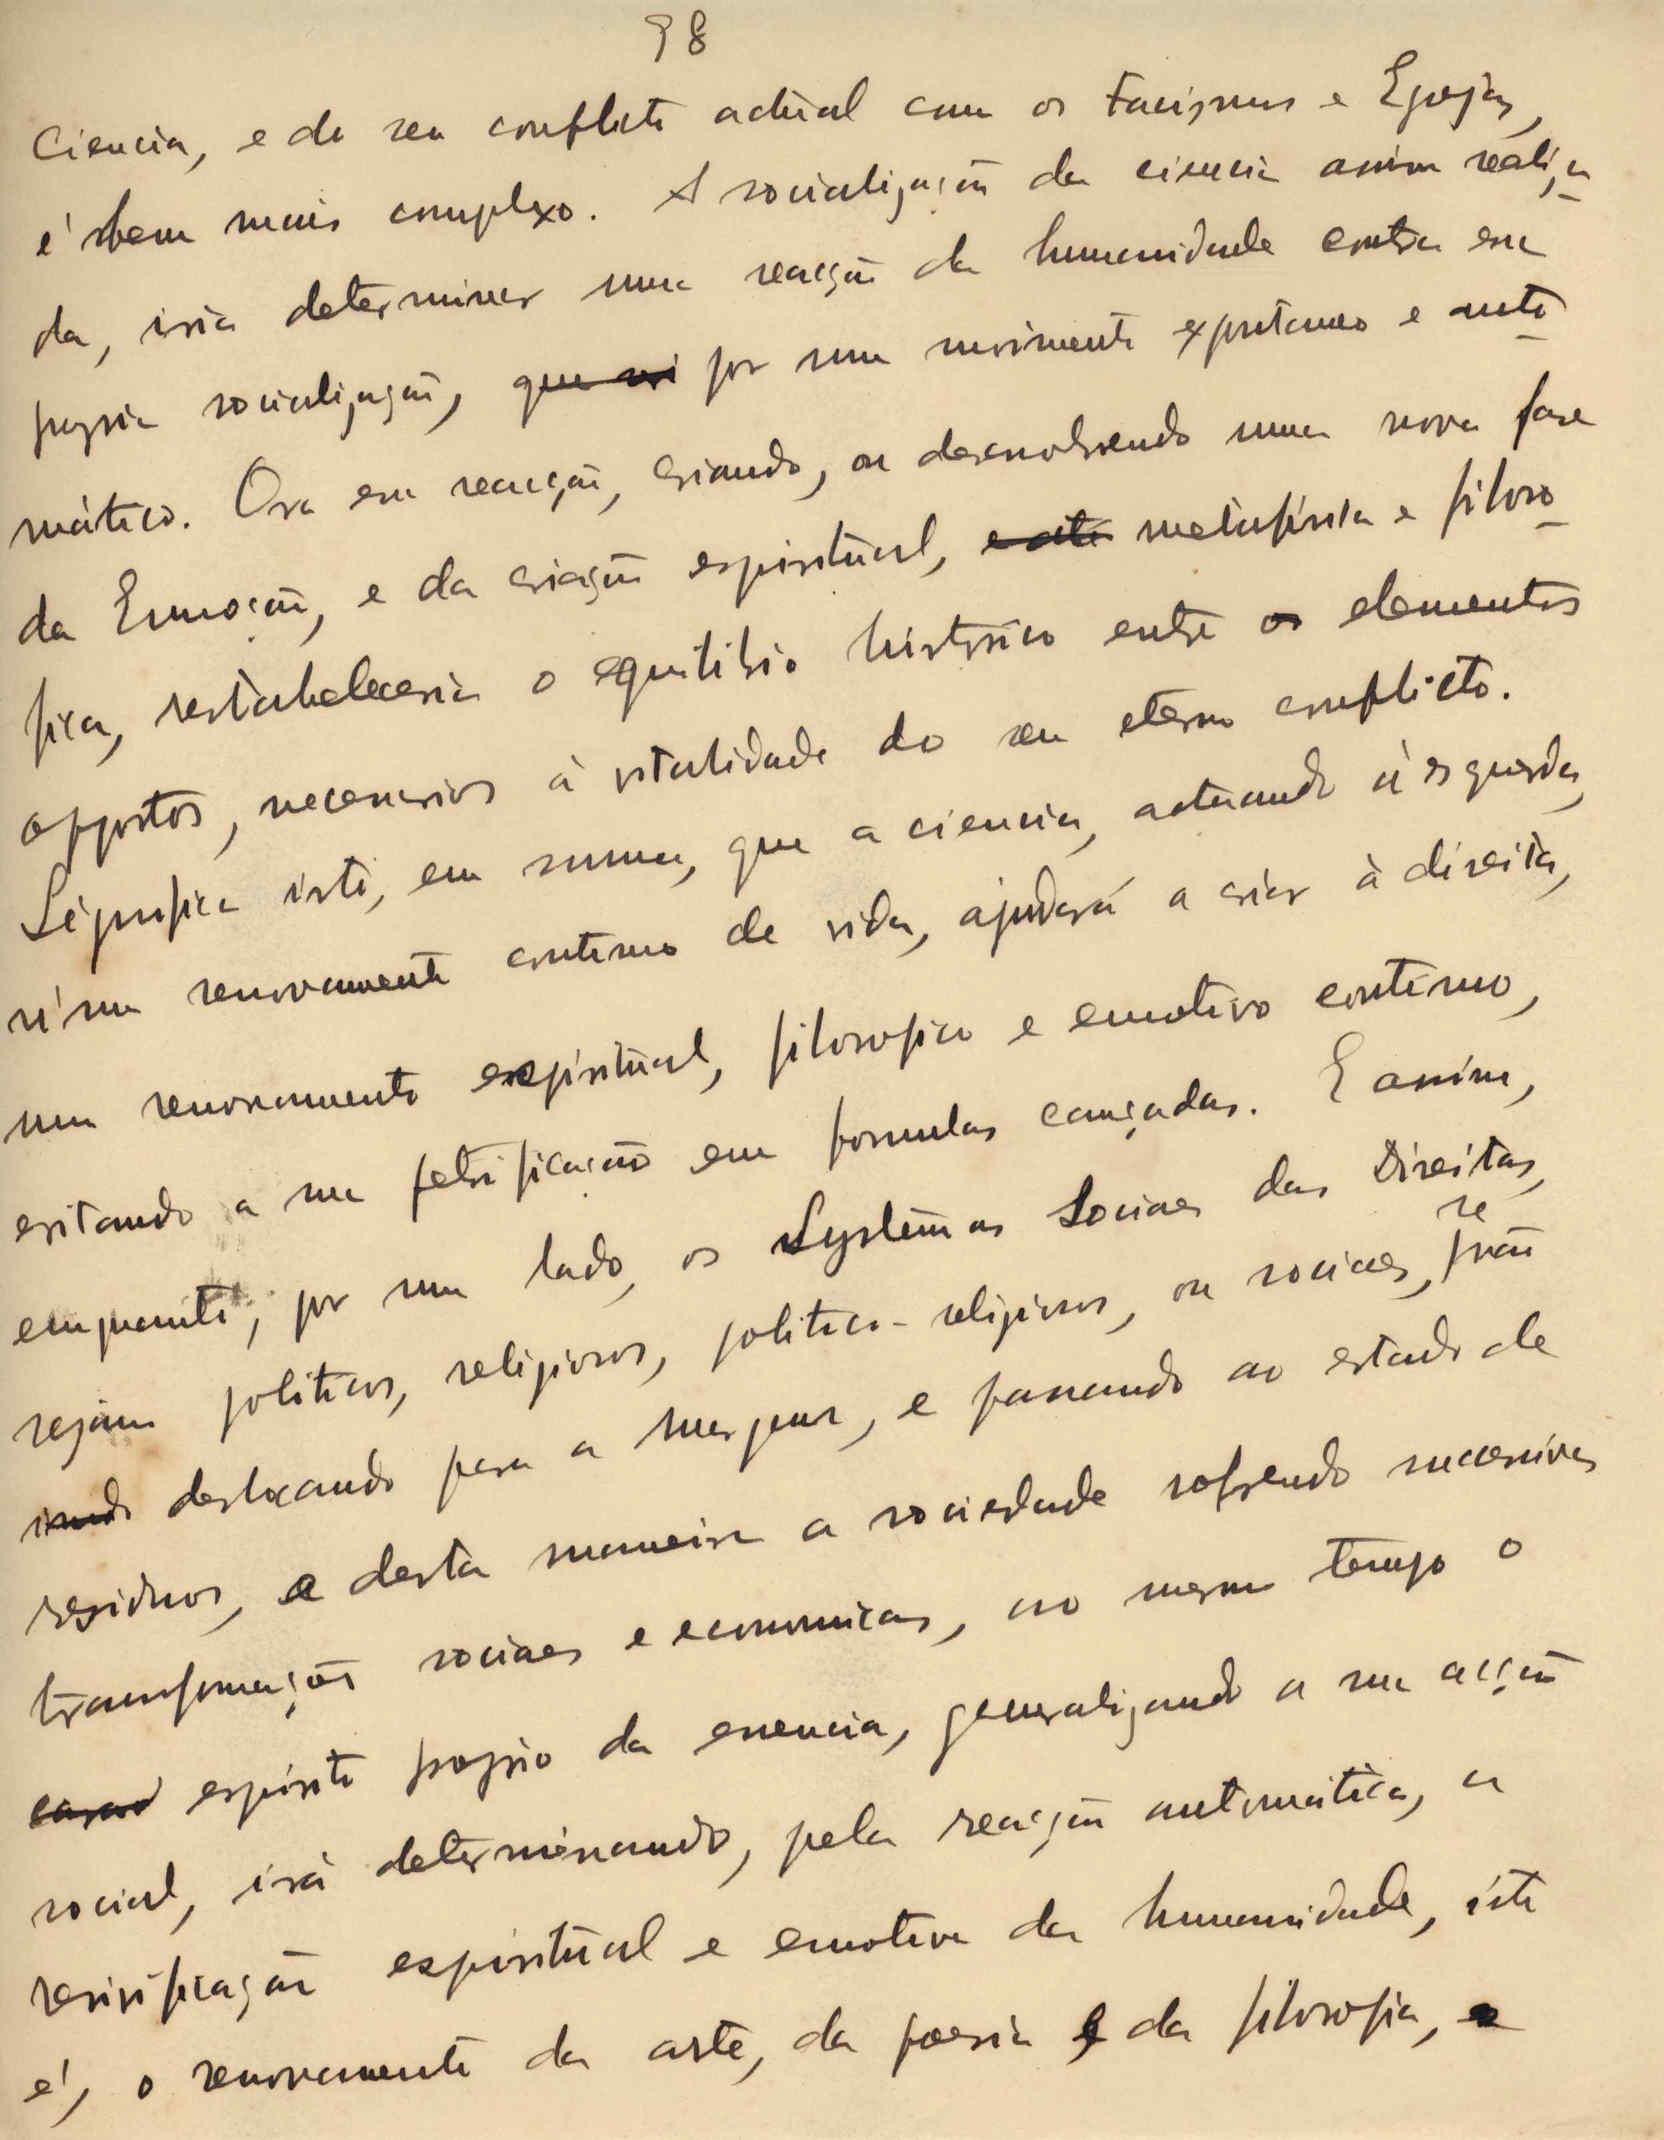 98
Ciencia, e do seu conflicto actual com os Facismos e Egrejas,
é bem mais complexo. A socialização da ciencia assim realiza
da, iria determinar uma reacção da humanidade contra essa
propria socialização, que vi por um movimento expontaneo e auto
mático. Ora essa reacção, criando, ou desenvolvendo uma nova fase
da Emoção, e da criação espiritual, e até metafisica e filoso
fica, restabeleceria o equilibrio historico entre os elementos
oppostos, necessarios á vitalidade do seu eterno conflicto.
Significa isto, em summa, que a ciencia, actuando á esquerda,
n'um renovamento continuo de vida, ajudará a criar à direita,
um renovamento espiritual, filosofico e emotivo continuo,
evitando a sua petrificação em formulas cançadas. E assim,
emquanto, por um lado, os Systemas Sociaes das Direitas,
sejam politicos, religiosos, politico-religiosos, ou sociaes, se irão
indo deslocando para a margem, e passando ao estado de
residuos, e desta maneira a sociedade sofrendo sucessivas
transformações sociaes e economicas, ao mesmo tempo o
espirito proprio da essencia, generalizando a sua acção
social, irá determinando, pela reacção automática, a
revivificação espiritual e emotiva da humanidade, isto
é, o renovamento da arte, da poesia e da filosofia, e